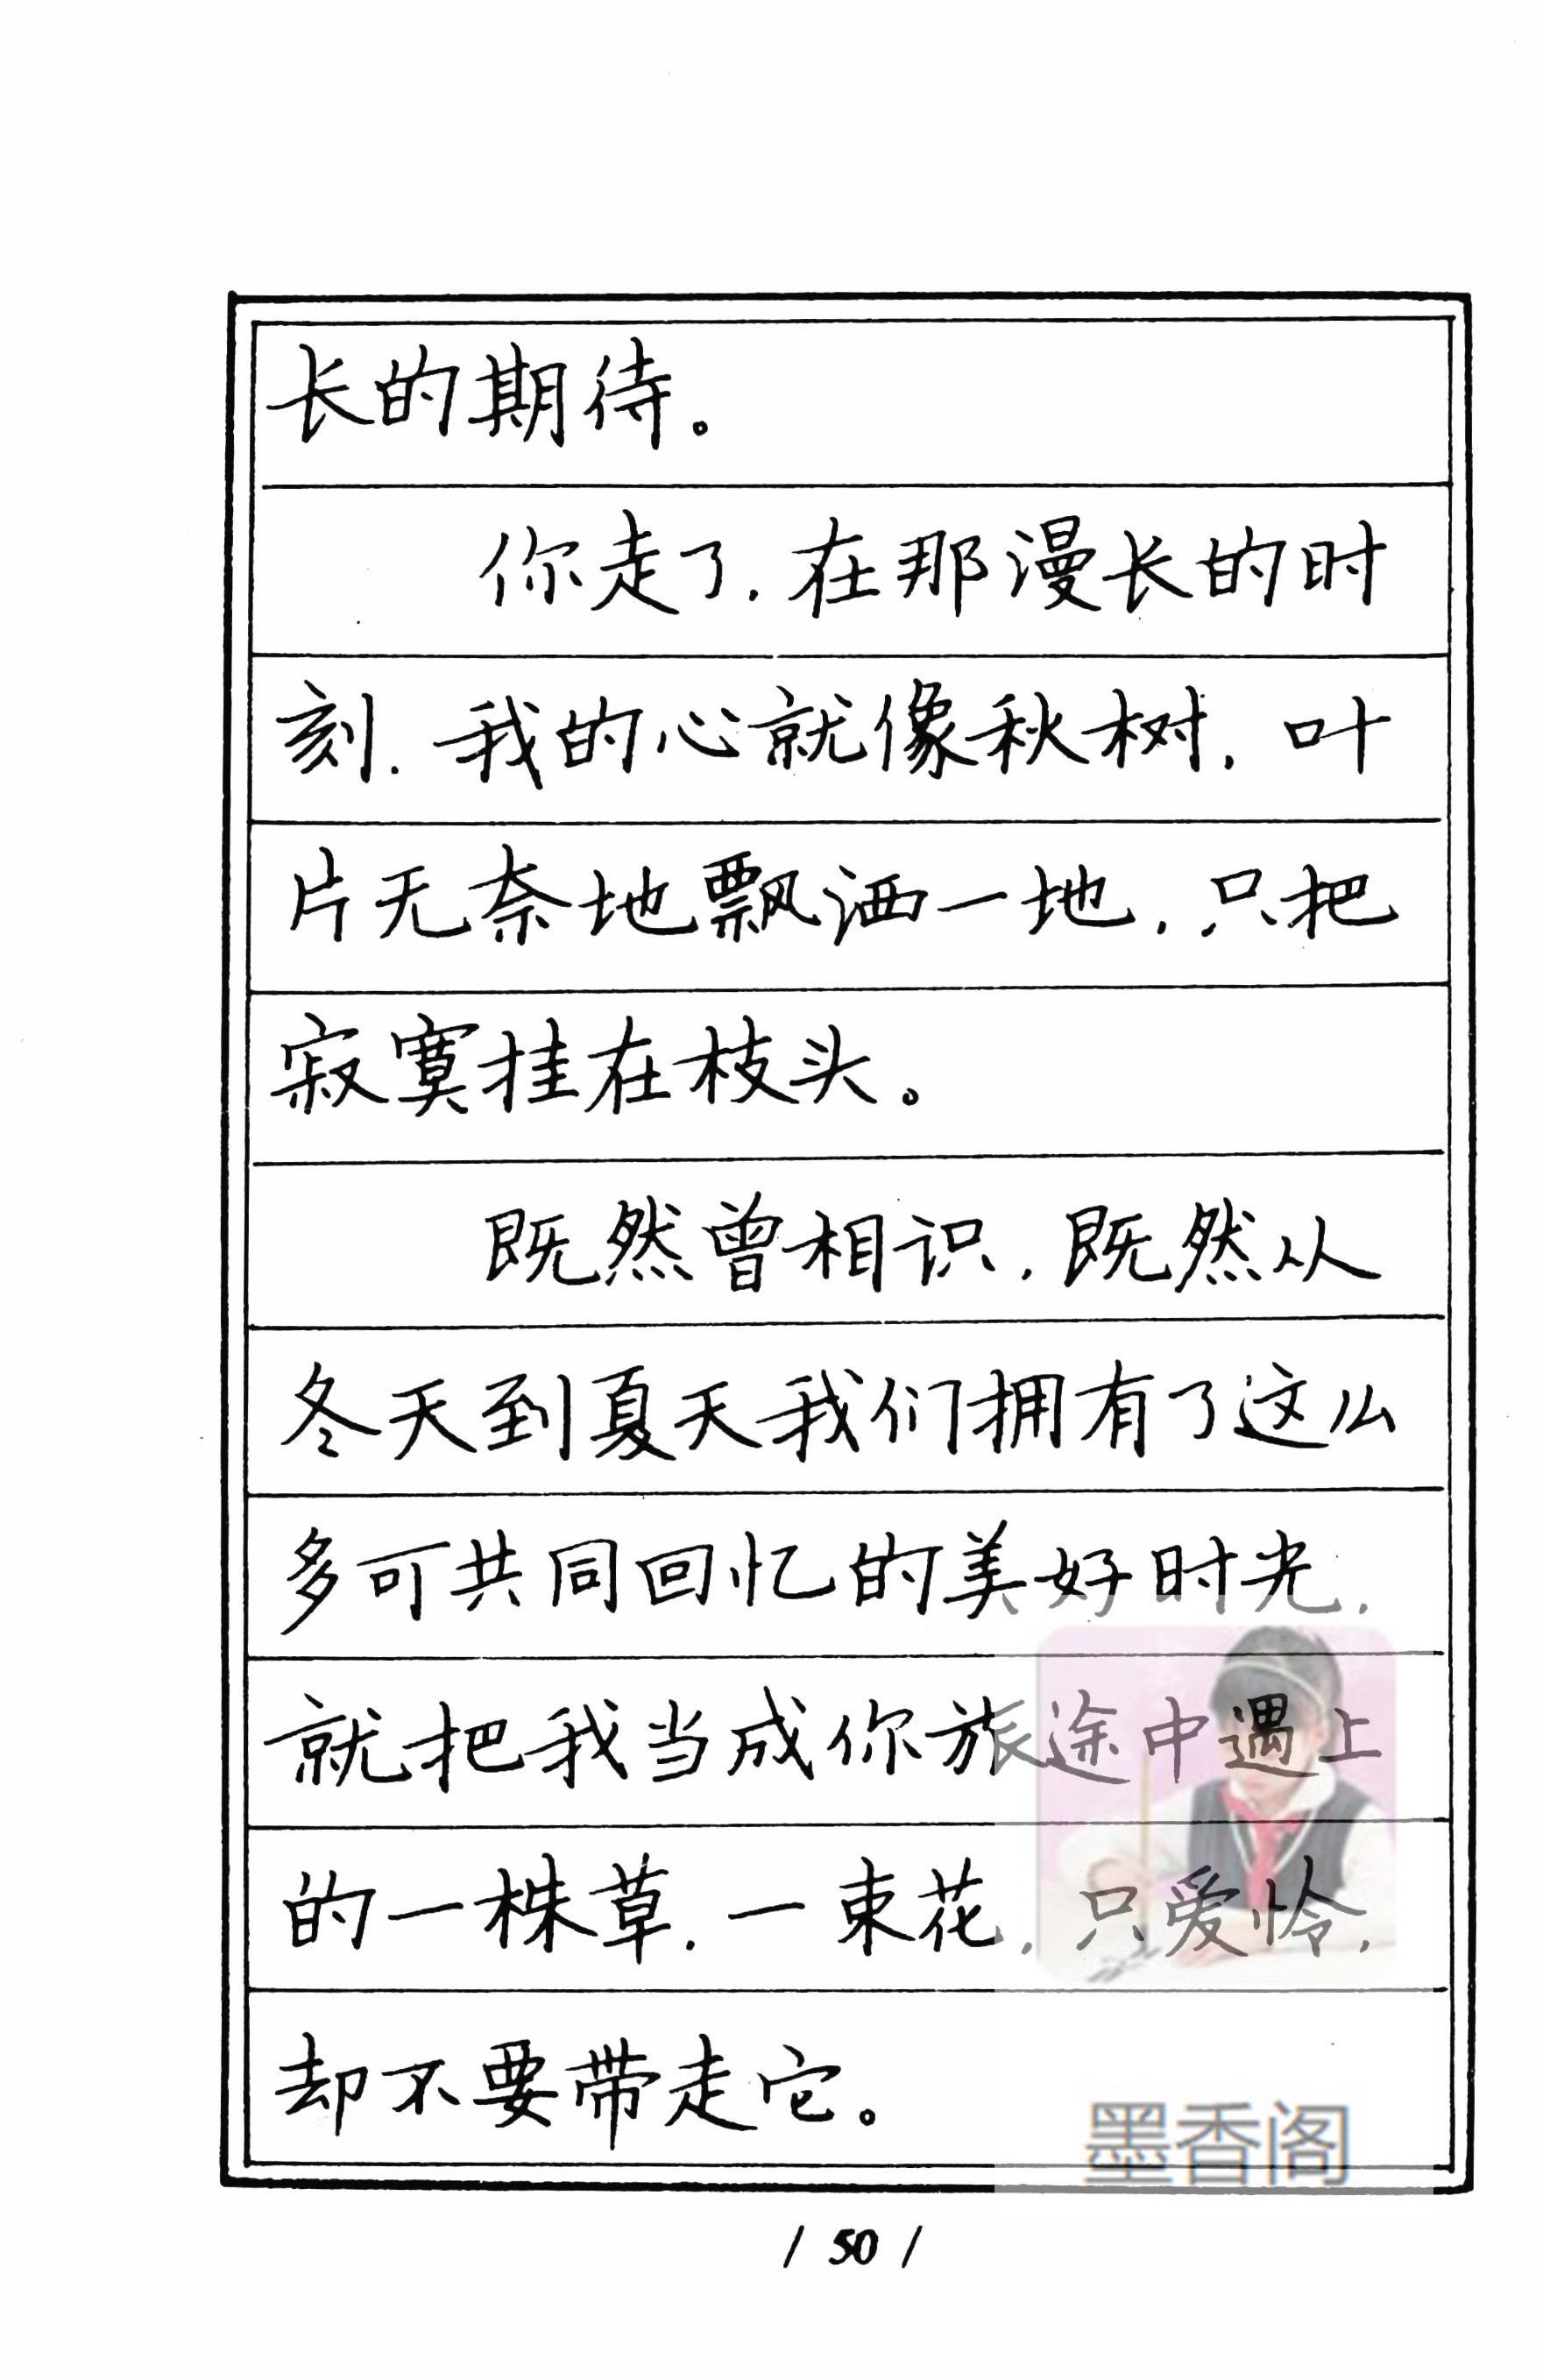 长的期待。
你走了,在那漫长的时
刻,我的心就像秋树,叶
片无奈地飘洒一地,只把
寂寞挂在枝头。
既然曾相识,既然从
冬天到夏天我们拥有了这么
多可共同回忆的美好时光,
就把我当成你旅途中遇上
的一株草,一束花,只爱怜,
却不要带走它。
墨香阁
/ 50 /